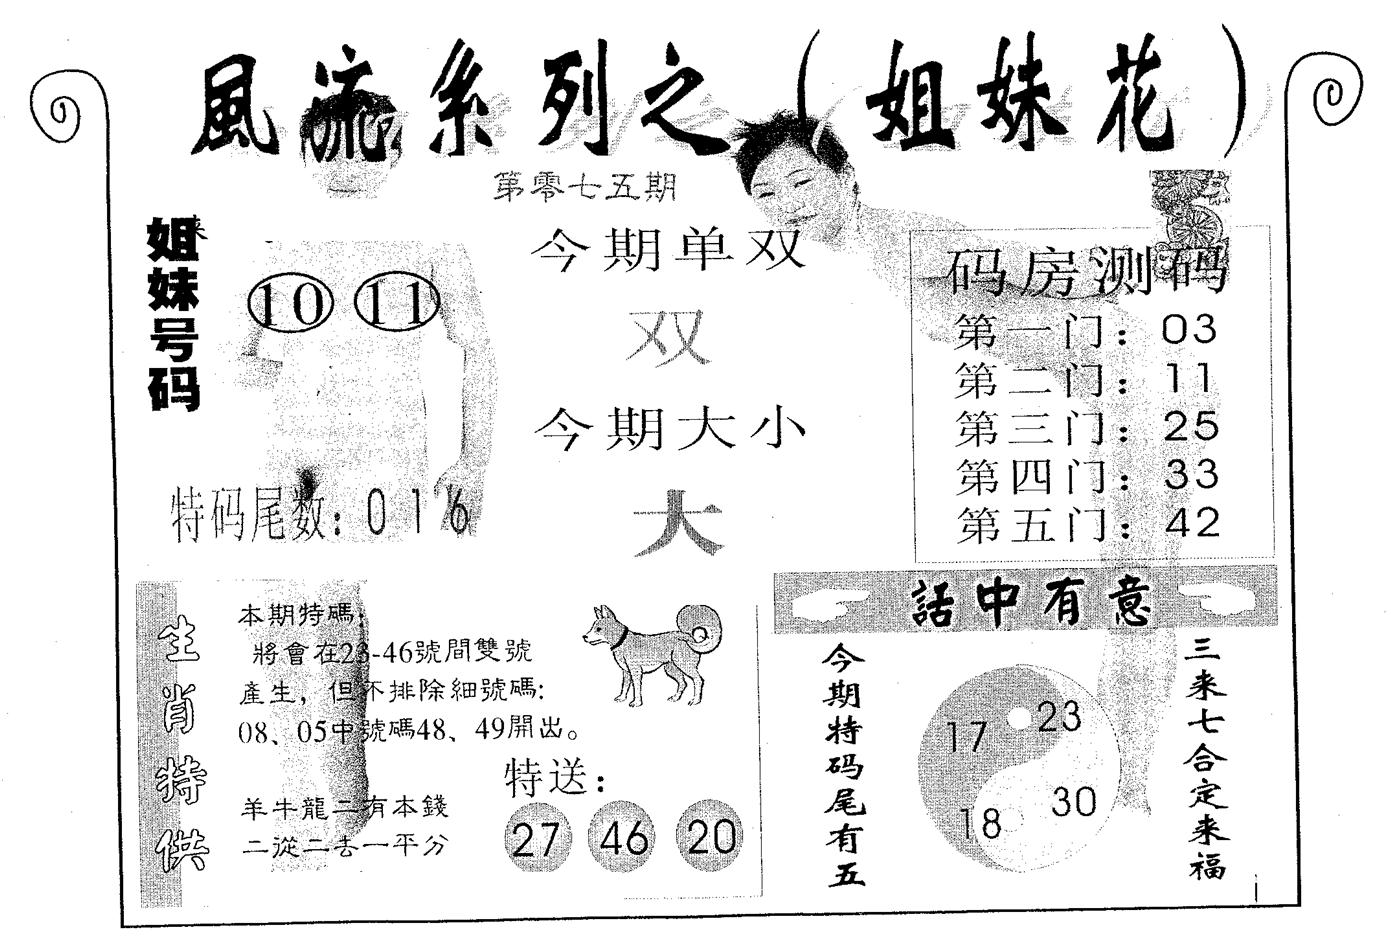 風流系列之（姐妹花）
第零七五期
姐妹号码
10 11
特码尾数：0 1 6
今期单双
双
今期大小
大
码房测码
第一门：03
第二门：11
第三门：25
第四门：33
第五门：42
生肖特供
本期特碼：
將會在23-46號間雙號
產生，但不排除細號碼:
08、05中號碼48、49開出。
羊牛龍二有本錢
二從二去一平分
特送：
27 46 20
話中有意
今期特码尾有五
17 23
18 30
三来七合定来福